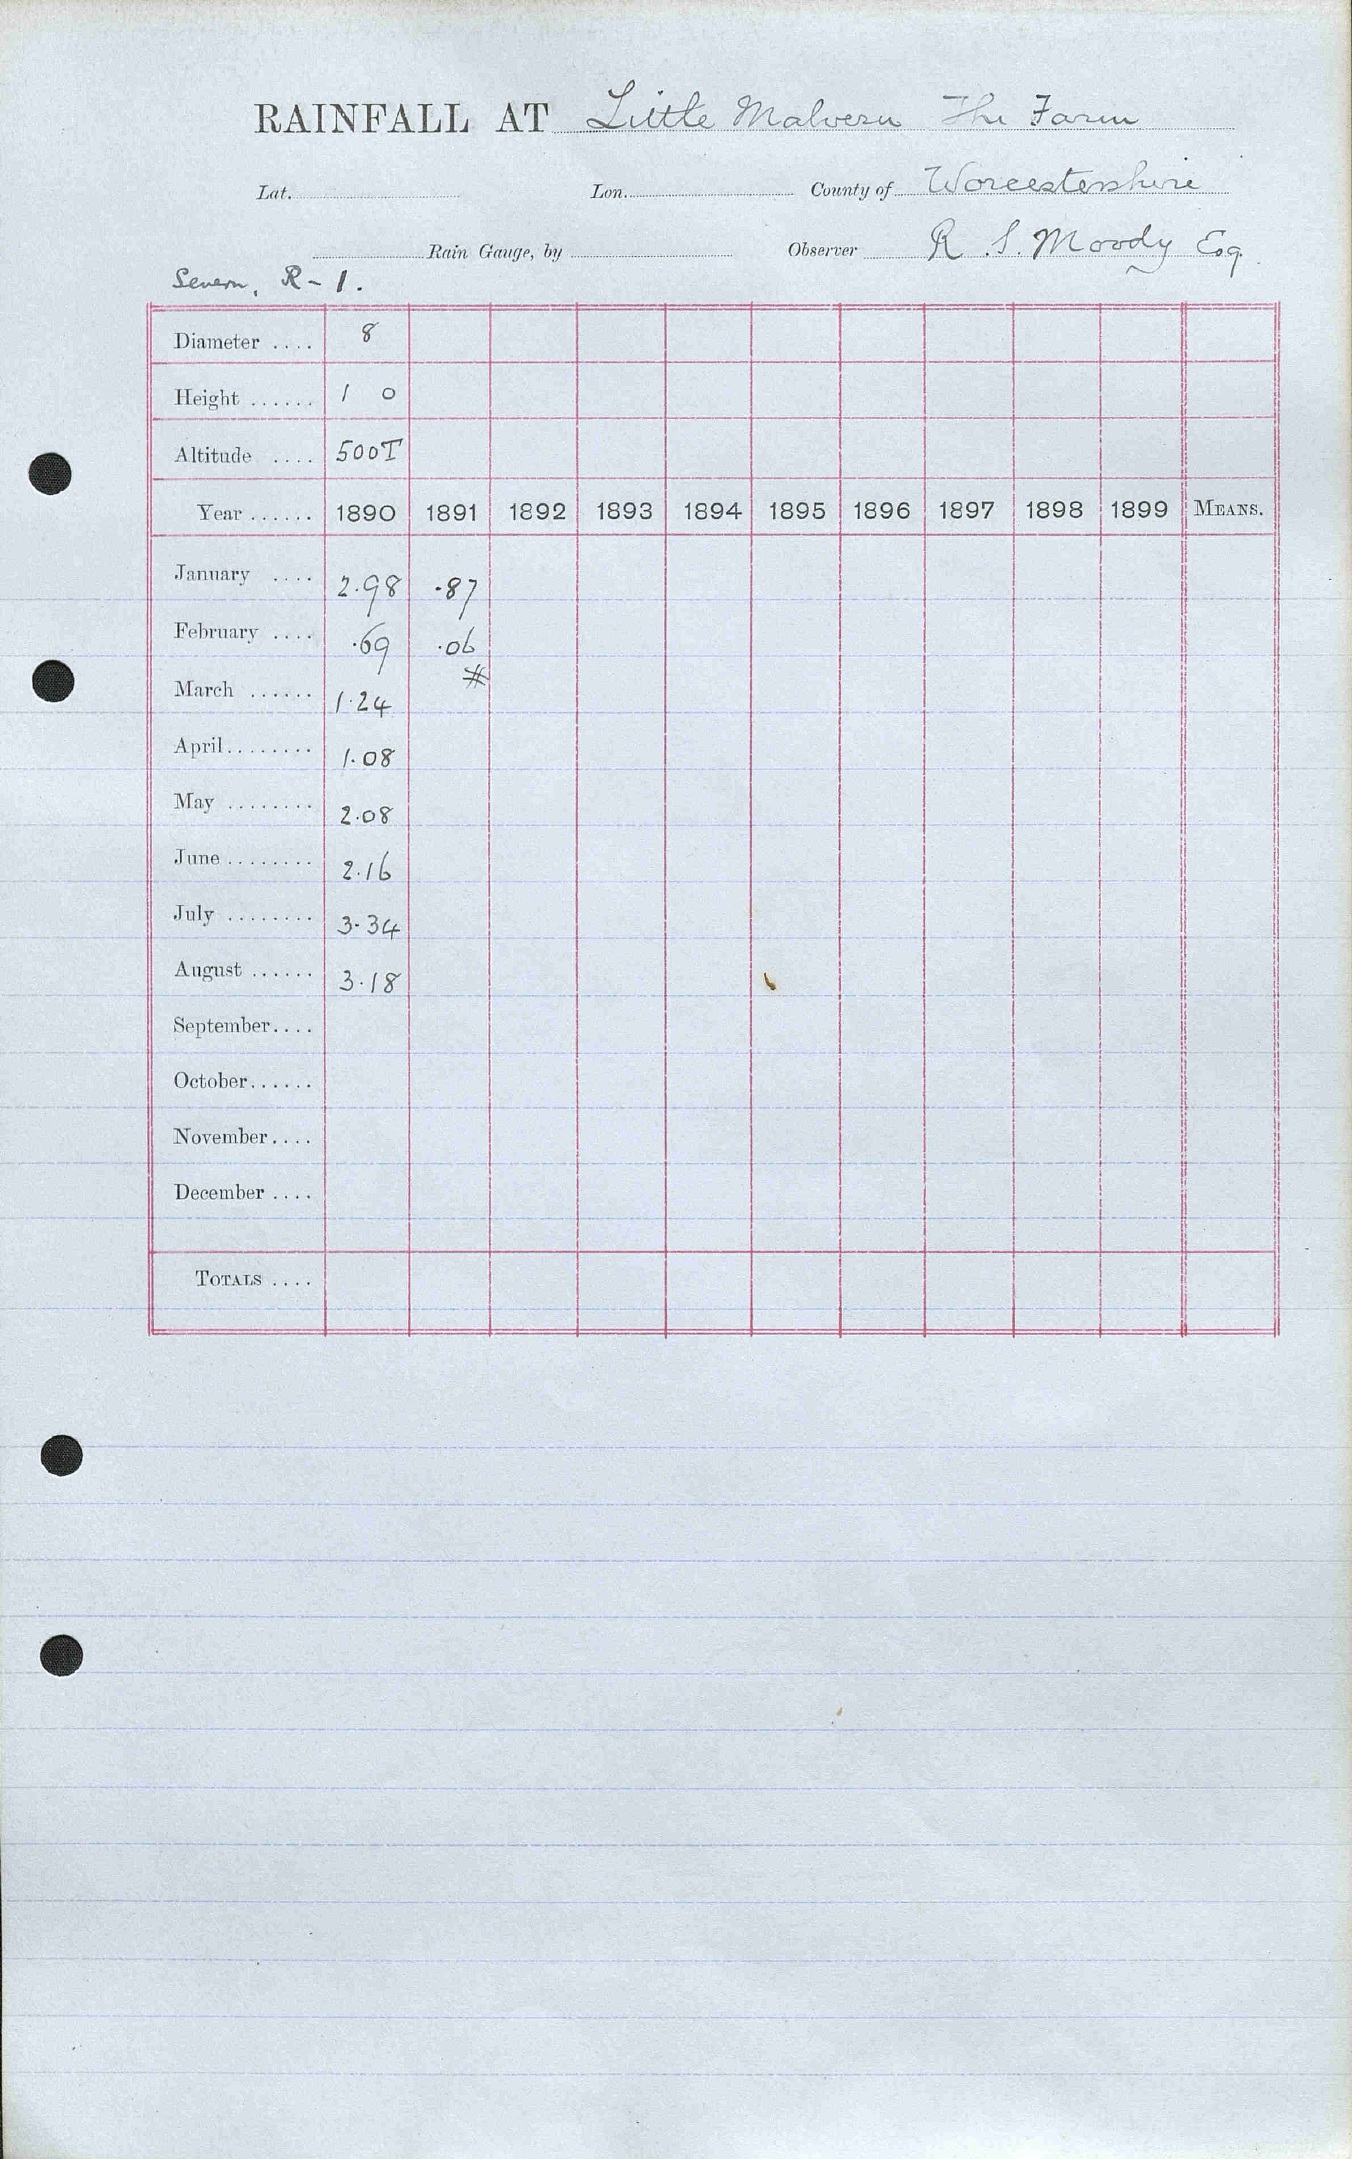 RAINFALL AT Little Malvern The Farm
Lat. Lon. County of Worcestershire
Rain Gauge, by Observer R S. Moody Esq.
Severn, R - 1.
Diameter .... 8
Height ...... 1 0
Altitude .... 500T
Year ...... 1890 1891 1892 1893 1894 1895 1896 1897 1898 1899 MEANS.
January .... 2.98 .87
February .... .69 .06
#
March ...... 1.24
April........ 1.08
May ........ 2.08
June ........ 2.16
July ........ 3.34
August ...... 3.18
September....
October......
November....
December ....
TOTALS ....